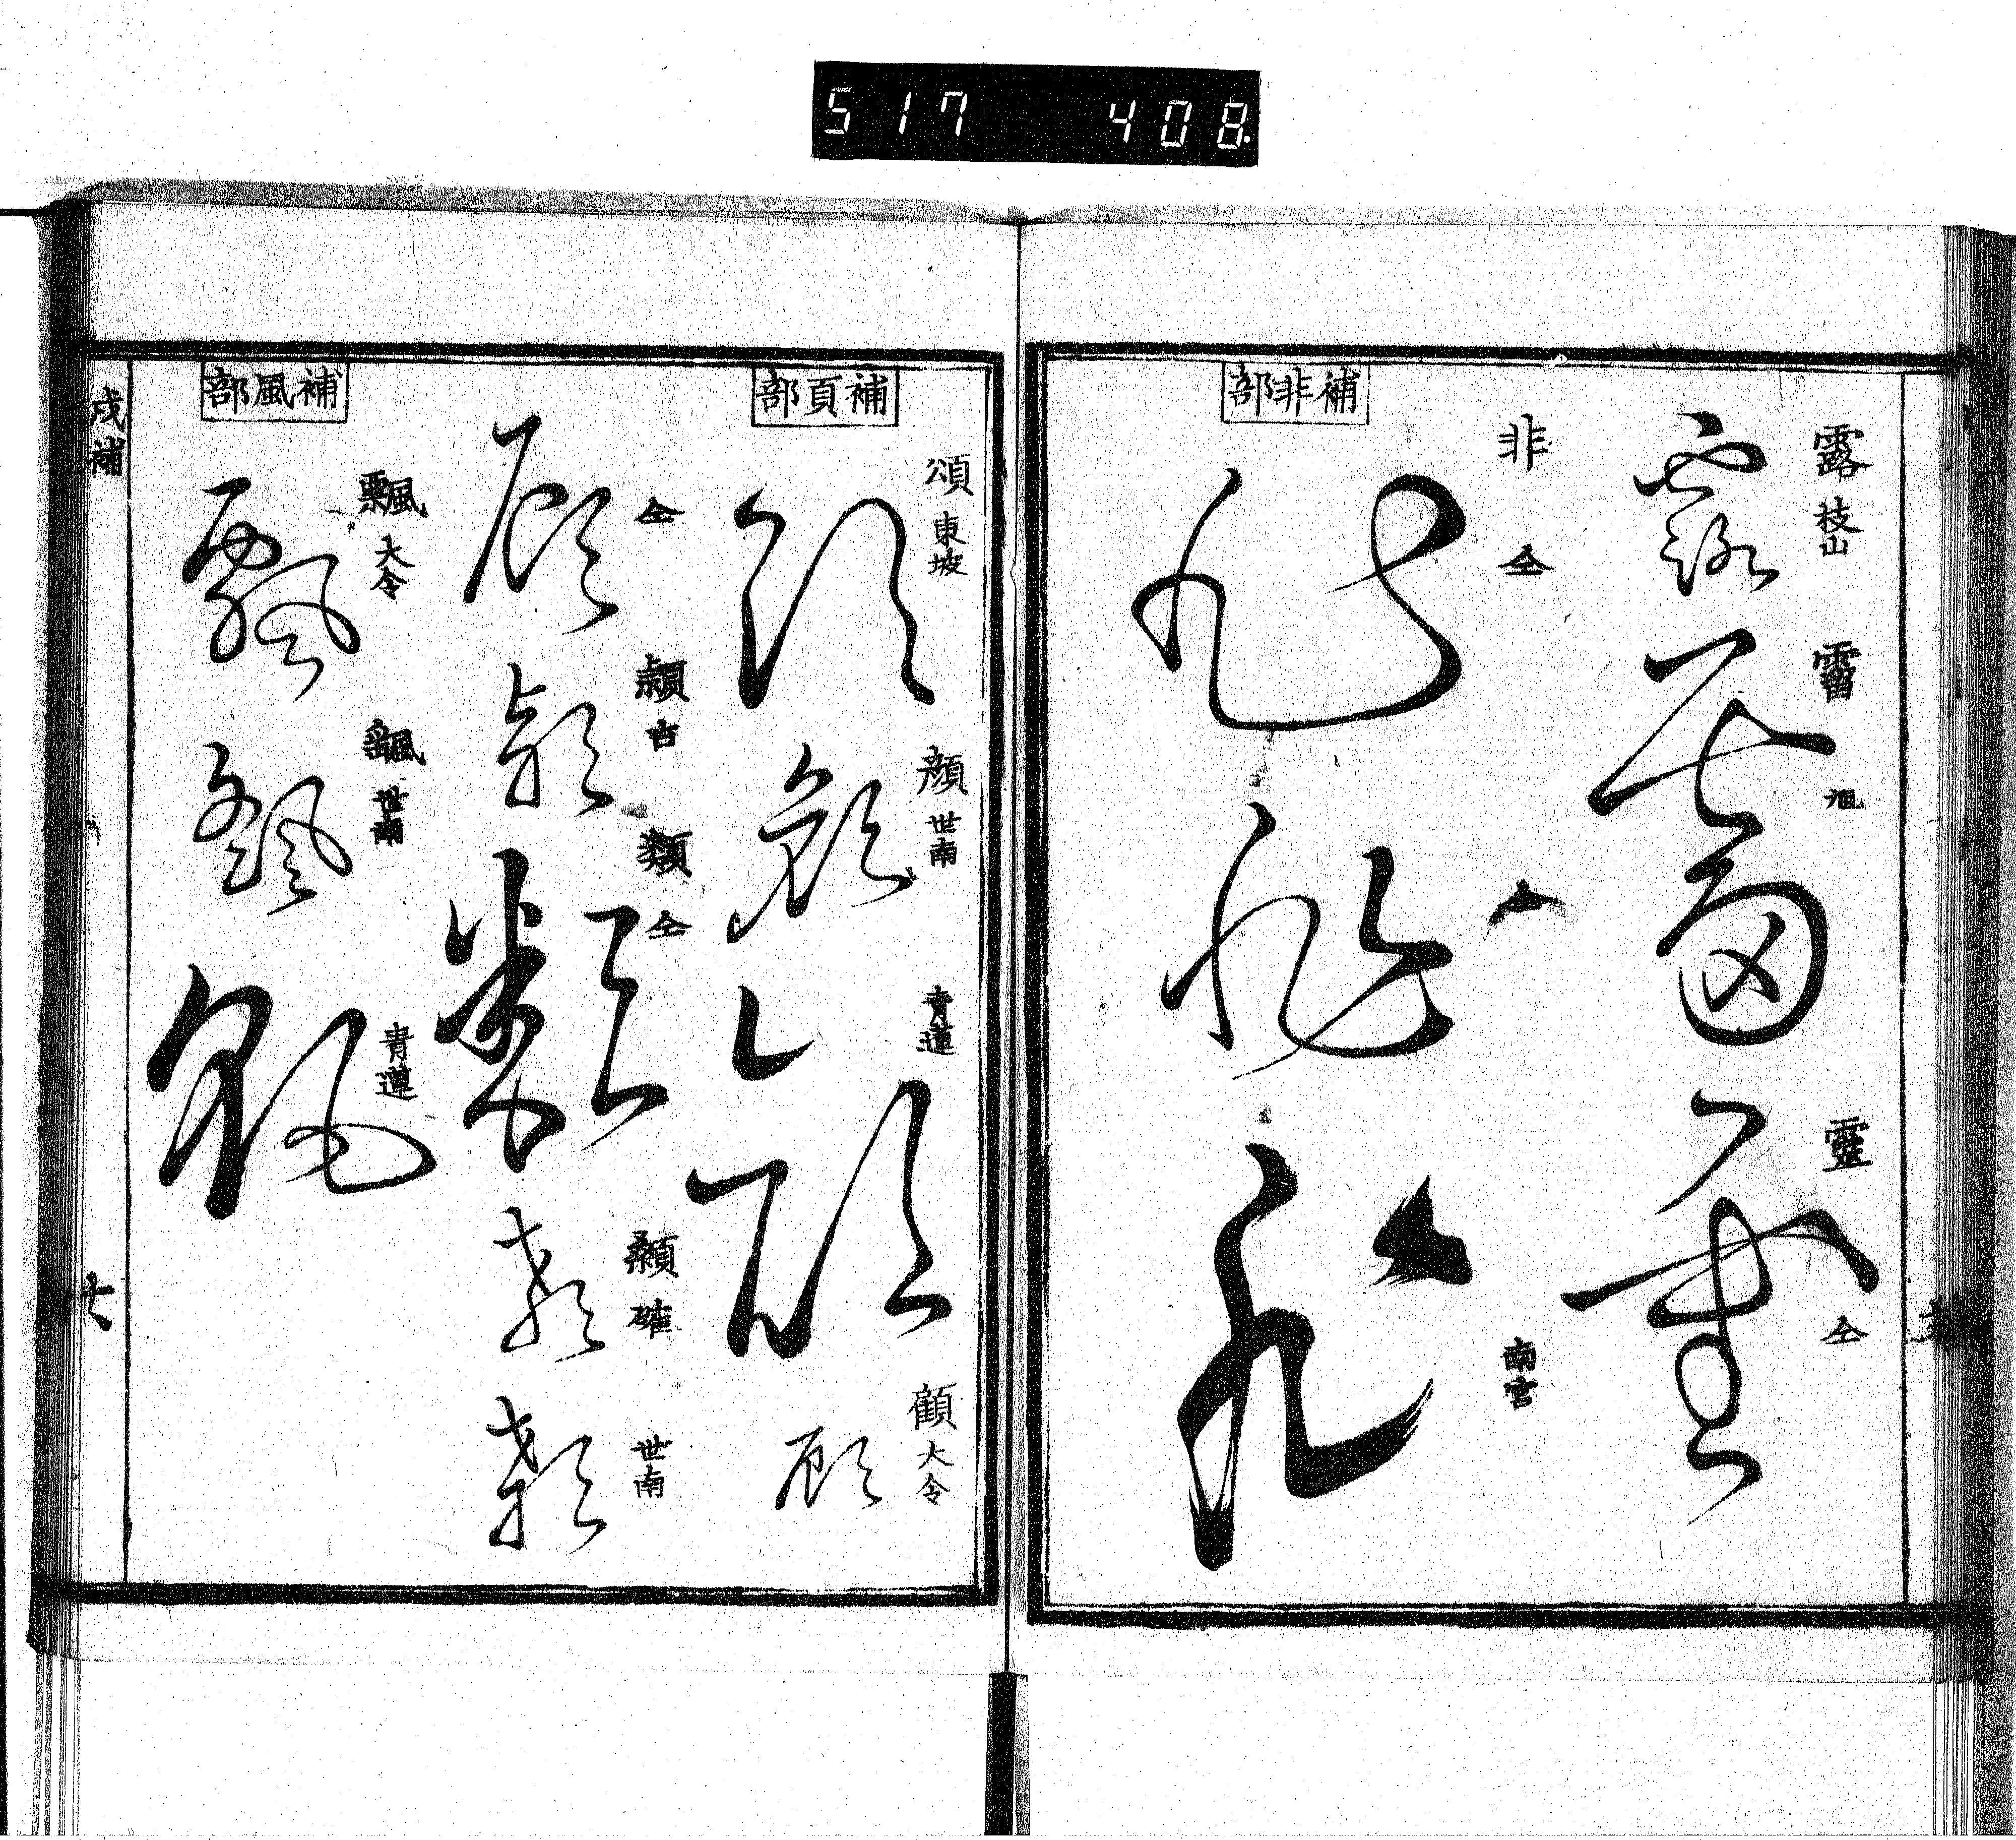 517 408
露 枝山
雷 旭
靈 仝
補非部
非 仝
仝
南宮
補頁部
頌 東坡
顔 世南
青蓮
顧 大令
仝
頴 古
類 仝
顙 確
世南
補風部
飄 大令
飖 世南
青蓮
戌補